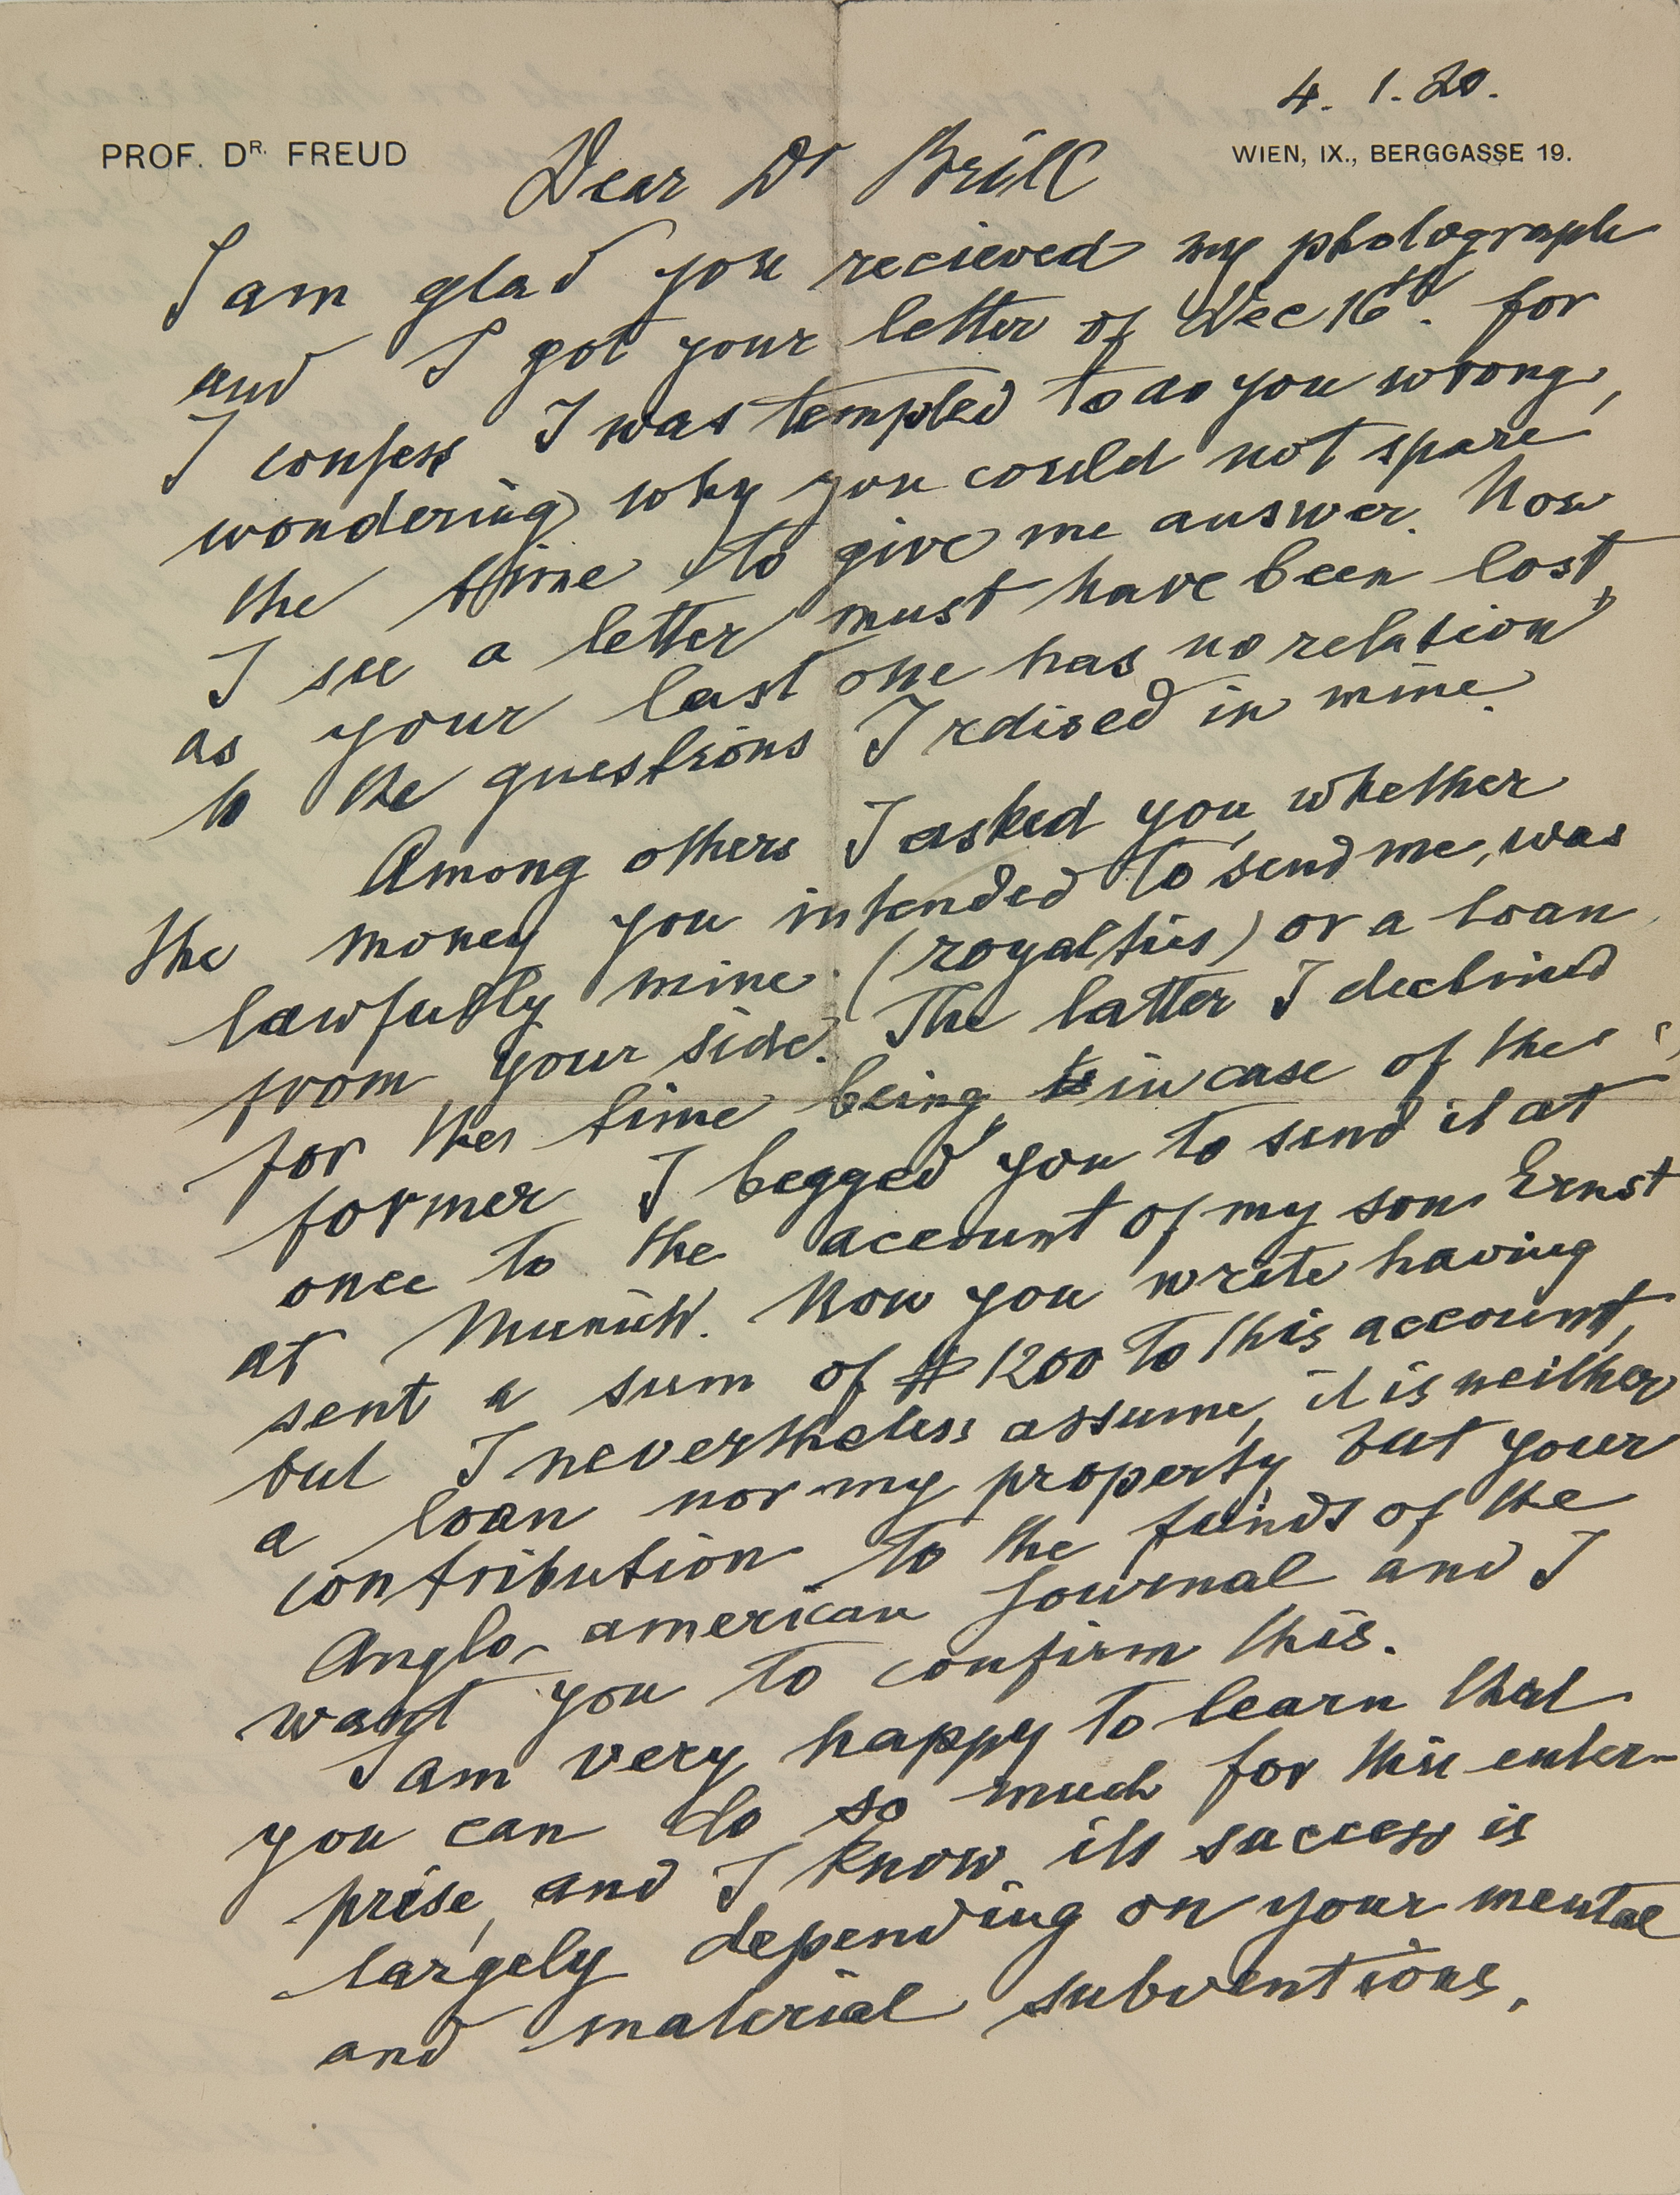 4. 1. 20.
PROF. DR. FREUD
WIEN, IX., BERGGASSE 19.
Dear Dr Brill
I am glad you recieved my photograph
and I got your letter of Dec 16th. for
I confess I was tempted to do you wrong,
wondering why you could not spare
the time to give me answer. Now
I see a letter must have been lost,
as your last one has no relation
to the questions I raised in mine.
Among others I asked you, whether
the money you intended to send me, was
lawfully mine (royalties) or a loan
from your side. The latter I declined
for the time being, in case of the
former I begged you to send it at
once to the account of my son Ernst
at Munich. Now you write having
sent a sum of $ 1200 to this account,
but I nevertheless assume, it is neither
a loan nor my property but your
contribution to the funds of the
Anglo-american Journal and I
want you to confirm this.
I am very happy to learn that
you can do so much for this enter-
prise, and I know its success is
largely depending on your mental
and material subventions.